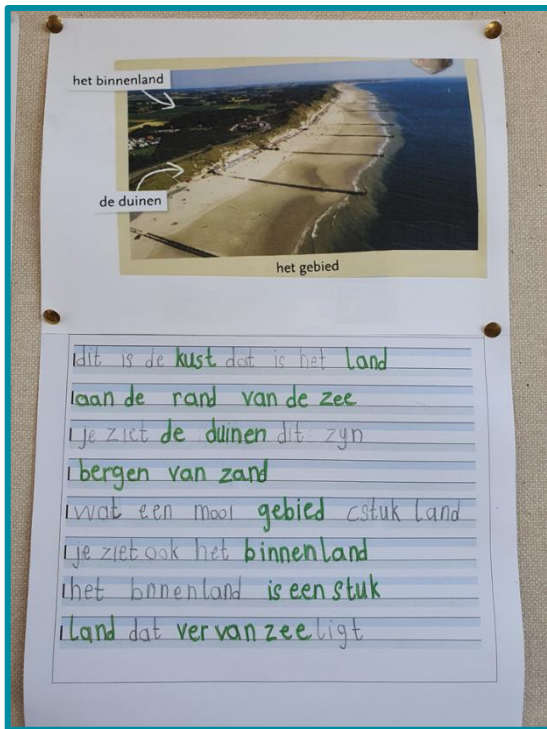 het binnenland
de duinen
het gebied
dit is de kust dat is het land
aan de rand van de zee
je ziet de duinen dit zyn
bergen van zand
wat een mooi gebied cstuk land
je ziet ook het binnenland
het bnnenland is een stuk
land dat ver van zee ligt